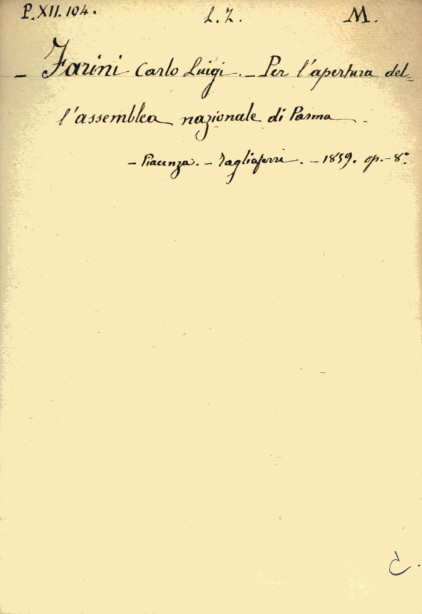 P.XII.104. L.Z. M.
- Farini Carlo Luigi. - Per l'apertura del-
l'assemblea nazionale di Parma.
- Piacenza. - Tagliaferri. - 1859. op. - 8°.